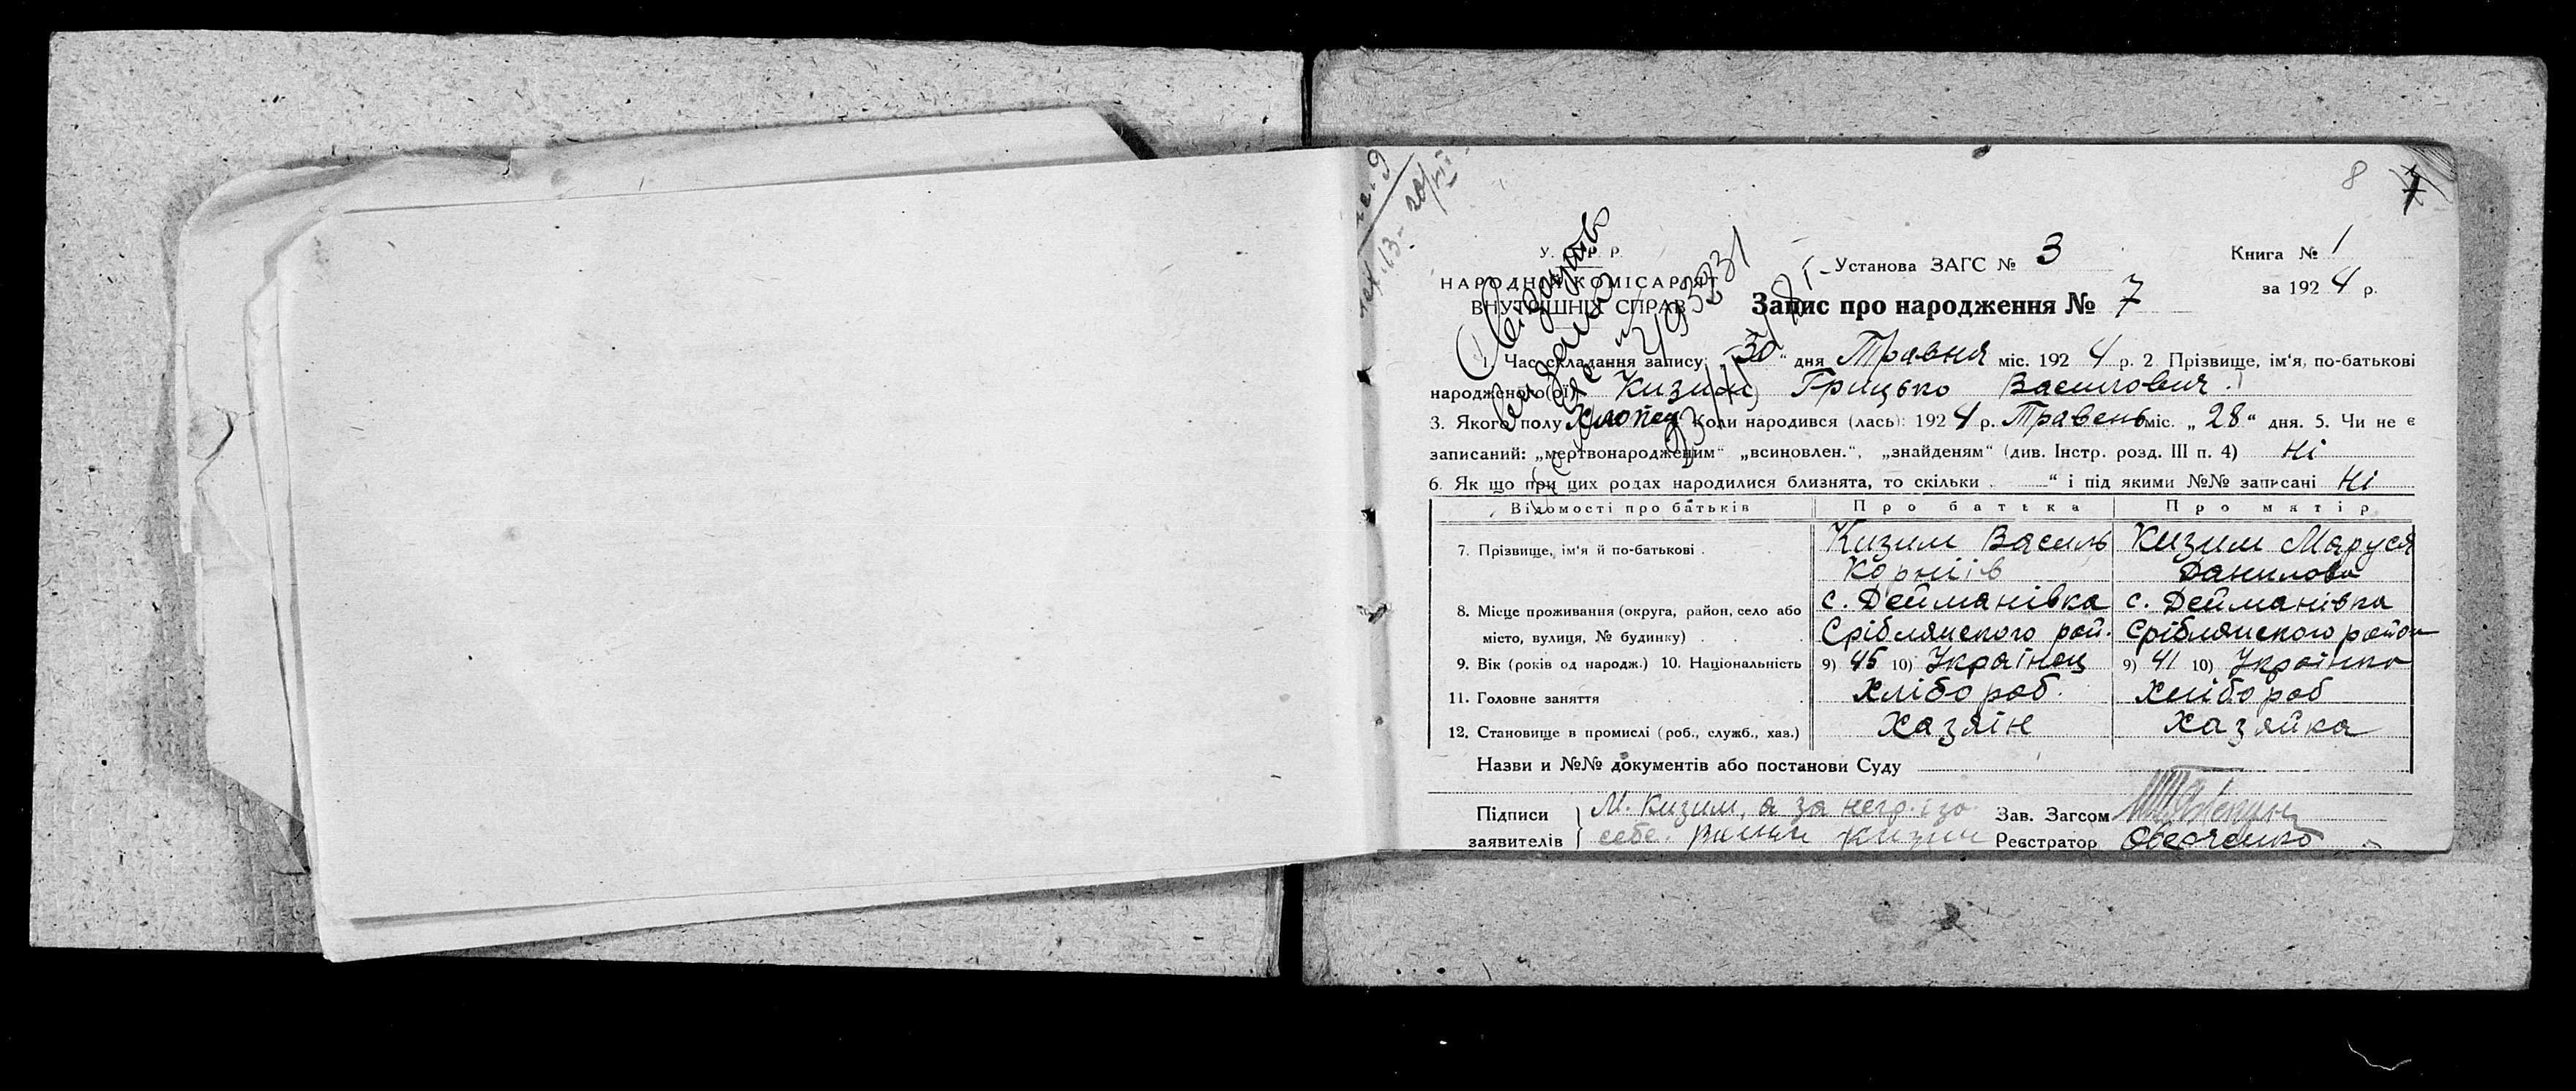 8 7
У. С. Р. Р.
НАРОДНІЙ КОМІСАРІЯТ
ВНУТРІШНІХ СПРАВ
Установа ЗАГС № 3
Книга № 1
за 1924 р.
Запис про народження № 7
1. Час складання запису: „30“ дня Травня міс. 1924 р. 2. Прізвище, ім'я, по-батькові
народженого(ої) Кизим Грицько Василович.
3. Якого полу Хлопец Коли народився (лась): 1924 р. Травень міс. „28“ дня. 5. Чи не є
записаний: „мертвонародженим“ „всиновлен.“, „знайденям“ (див. Інстр. розд. III п. 4) Ні
6. Як що при цих родах народилися близнята, то скільки “ і під якими №№ записані Ні
Відомості про батьків Про батька Про матір
7. Прізвище, ім'я й по-батькові Кизим Василь Кизим Маруся
Корніїв Данилова
8. Місце проживання (округа, район, село або с. Дейманівка с. Дейманівка
місто, вулиця, № будинку) Сріблянського рай. Сріблянського район
9. Вік (років од народж.) 10. Національність 9) 45 10) Українец 9) 41 10) Українка
11. Головне заняття Хлібороб. Хлібороб
12. Становище в промислі (роб., служб., хаз.) Хазяїн Хазяйка
Назви и №№ документів або постанови Суду
Підписи М. Кизим, а за негр. і за Зав. Загсом
заявителів себе. Кизим Реєстратор Овсієнко